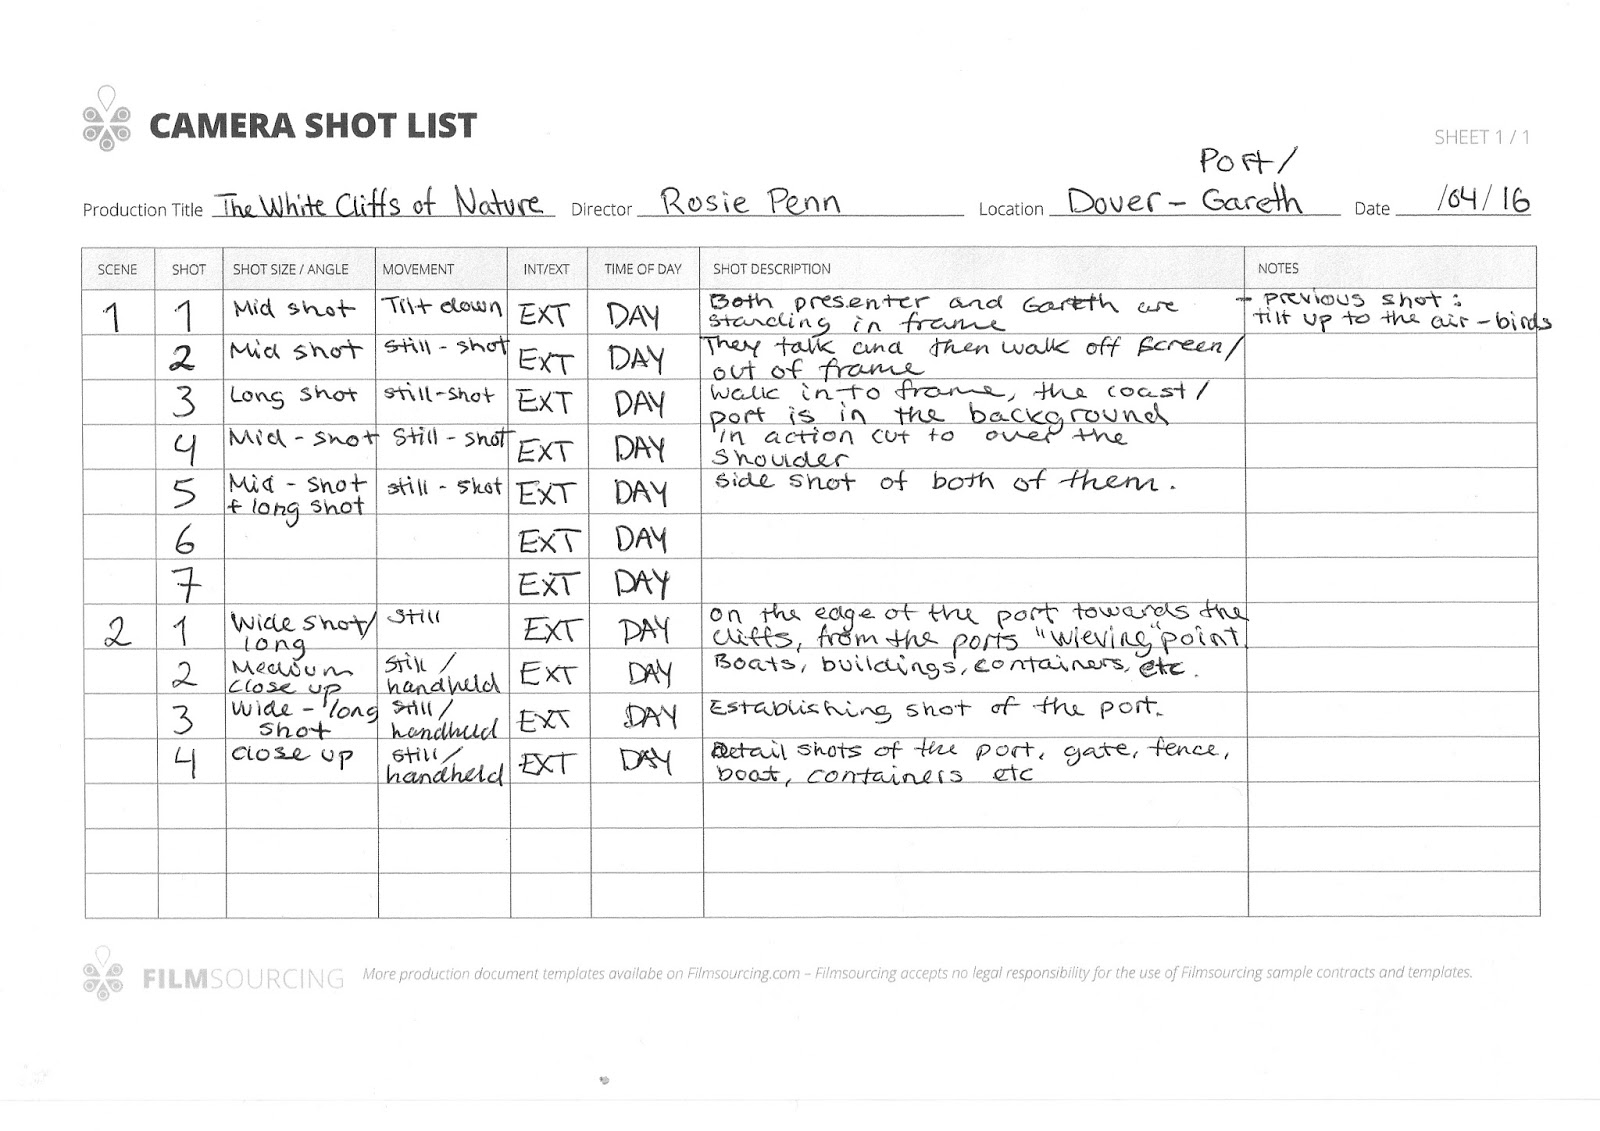 CAMERA SHOT LIST
SHEET 1 / 1
Port/
Production Title The White Cliffs of Nature Director Rosie Penn Location Dover - Gareth Date /04/16
SCENE SHOT SHOT SIZE / ANGLE MOVEMENT INT/EXT TIME OF DAY SHOT DESCRIPTION NOTES
1 1 Mid shot Tilt down EXT DAY Both presenter and Gareth are - previous shot:
standing in frame tilt up to the air - birds
2 Mid shot still - shot EXT DAY They talk and then walk off screen/
out of frame
3 Long shot still-shot EXT DAY walk in to frame, the coast/
port is in the background
4 Mid - shot Still - shot EXT DAY in action cut to over the
shoulder
5 Mid - shot still - shot EXT DAY side shot of both of them.
+ long shot
6 EXT DAY
7 EXT DAY
2 1 Wide shot/ Still EXT DAY on the edge of the port towards the
long cliffs, from the ports "wieving" point
2 Medium still/ EXT DAY Boats, buildings, containers, etc.
close up handheld
3 Wide - long still/ EXT DAY Establishing shot of the port.
shot handheld
4 close up still/ EXT DAY Detail shots of the port, gate, fence,
handheld boat, containers etc
FILMSOURCING More production document templates availabe on Filmsourcing.com – Filmsourcing accepts no legal responsibility for the use of Filmsourcing sample contracts and templates.